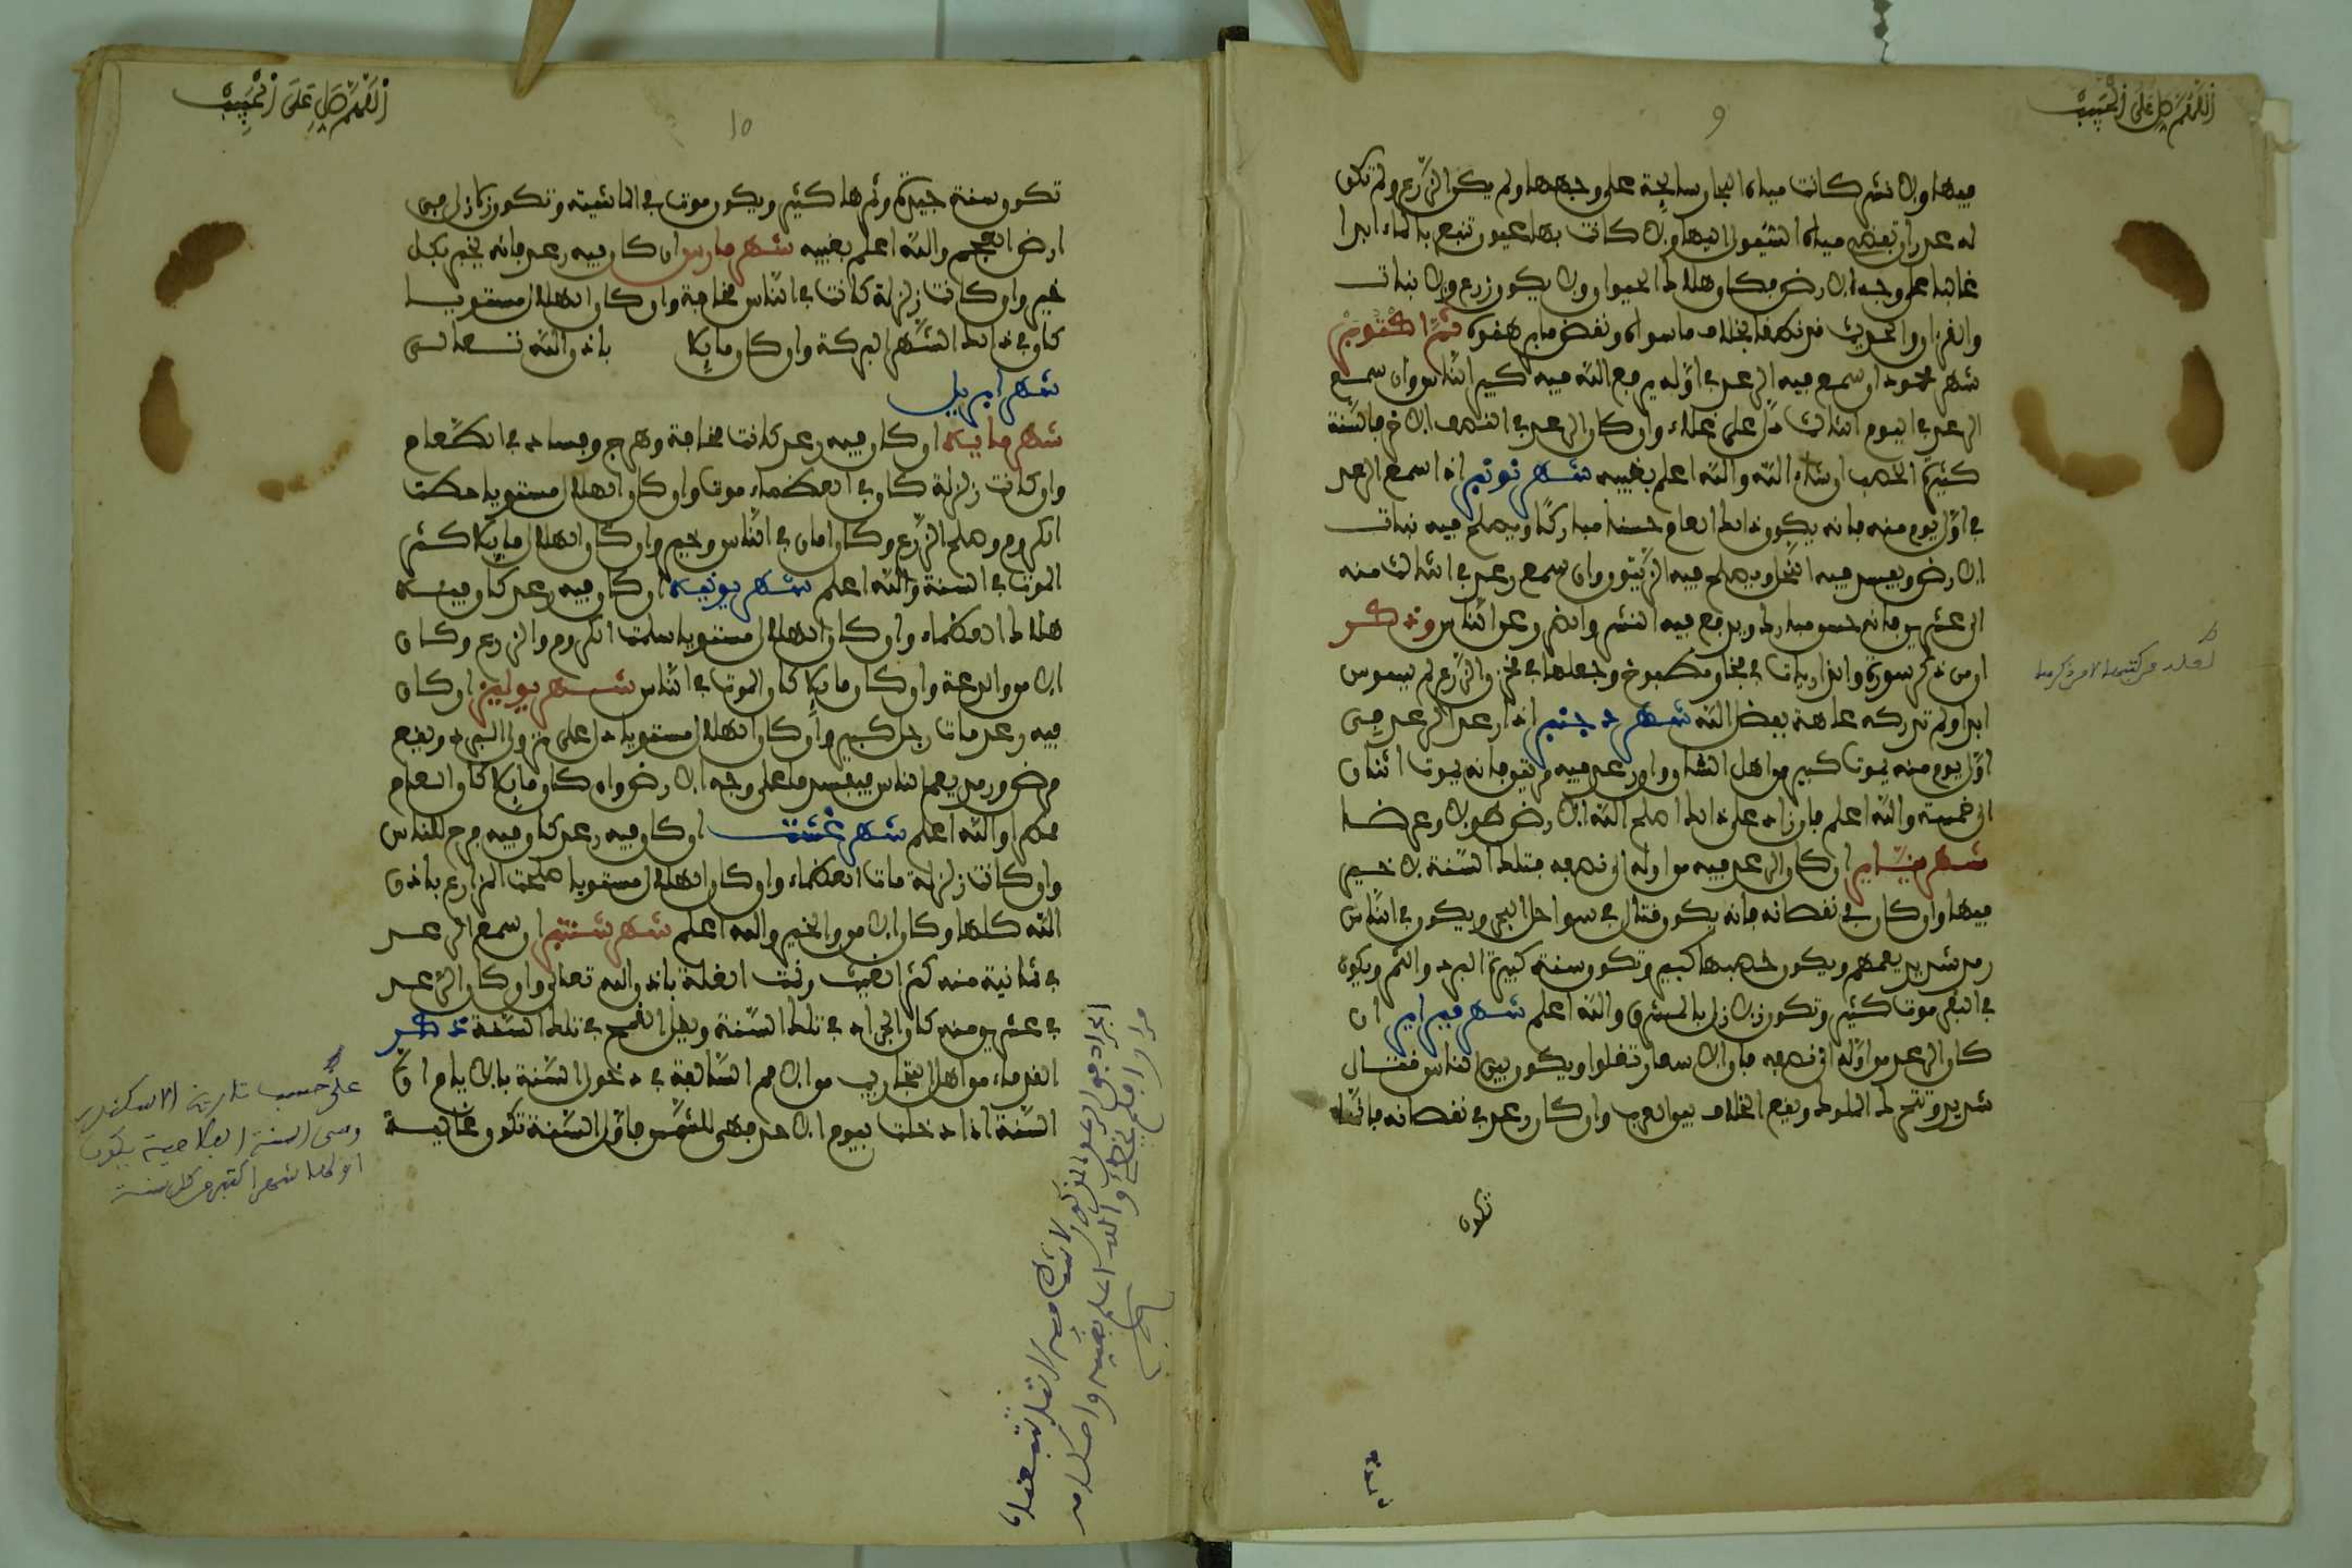 اللهم صل على الحبيب
9
فيها ولا نشر كانت مياه البحار سايحة على وجهها ولم يكن الزرع ولم تكن
له عذران بعضه مياه السيول اليها ولا كانت بها عيون تنبع بالماء ابدا
غالبا على وجه الارض فكان هلاك الحيوان ولا يكون زرع ولا نبات
شهر محمود ان سمع فيه الرعد في اوله يرفع الله فيه كبير الناس وان سمع
الرعد في اليوم الثالث دل على غلاء وان كان الرعد في النصف الاخر فالسنة
كثيرة الخصب ان شاء الله والله اعلم بغيبه شهر نونبر اذا سمع الرعد
في اول يوم منه فانه يكون ذلك العام حسنا مباركا ويصلح فيه نبات
الارض ويفسد فيه النخل ويصلح فيه الزيتون وان سمع رعد في الثالث منه
الى عشرين فانه حسن مبارك ويرفع فيه الشر والضر عن الناس وذكر
ان من ذكر سورة والذاريات في فخار مطبوخ وجعلها في مخزن الزرع لم يسوس
ابدا ولم تدركه عاهة بفضل الله شهر دجنبر اذا رعد الرعد في
اول يوم منه يموت كبير من اهل الشان وان رعد فيه مرتين فانه يموت اثنان
الى خمسة والله اعلم فان زاد على ذلك اصلح الله الارض طولا وعرضا
شهر ينّاير ان كان الرعد فيه من اوله الى نصفه فتلك السنة لا خير
فيها وان كان في نقصانه فانه يكون قتال في سواحل البحر ويكون في الناس
رمد شديد يعمهم ويكون خصبها كبير وتكون سنة كثيرة البرد والثمر ويكون
في البقر موت كثير وتكون زلازل بالمشرق والله اعلم شهر فبراير ان
كان الرعد من اوله الى نصفه فان الاسعار تغلوا ويكون بين الناس قتال
شديد وتتحرك الملوك ويقع الخلاف بين العرب وان كان رعد في نقصانه فانها
تكون
اللهم صل على الحبيب
10
تكون سنة جيدة وثمرها كثير ويكون موت في الماشية وتكون زلازل في
ارض العجم والله اعلم بغيبه شهر مارس ان كان فيه رعد فانه يخبر بكل
خير وان كانت زلزلة كانت في الناس مخافة وان كان الهلال مستويا
كان في ذلك الشهر البركة وان كان مايلا باذن الله تعالى
شهر ابريل
شهر مايه ان كان فيه رعد كانت مخافة وهرج وفساد في الطعام
وان كانت زلزلة كان في العظماء موت وان كان الهلال مستويا حطت
الكروم وصلح الزرع وكان امان في الناس وخير وان كان الهلال مايلا كثر
الموت في السنة والله اعلم شهر يونيه ان كان فيه رعد كان فيه
هلاك العظماء وان كان الهلال مستويا سلمت الكروم والزرع وكان
الامن والدعة وان كان مايلا كان الموت في الناس شهر يوليز ان كان
فيه رعد مات رجل كبير وان كان الهلال مستويا دل على نزول البرد ويقع
مرض ورمد يعم الناس فيفسد ما على وجه الارض وان كان مايلا كان العام
ممطرا والله اعلم شهر غشت ان كان فيه رعد كان فيه مرج للناس
وان كانت زلزلة مات العظماء وان كان الهلال مستويا صلحت المزارع باذن
الله كلها وكان الامن والخير والله اعلم شهر شتنبر ان سمع الرعد
في ثمانية منه كثر الغيث ونمت الغلة باذن الله تعالى وان كان الرعد
في عشرين منه كان الجراد في تلك السنة ويقل القمح في تلك السنة ذكر
القدماء من اهل التجاريب من الامم السالفة في دخول السنة بالايام ان
السنة اذا دخلت بيوم الاحد فهي للشمس فاول السنة تكون غالية
على حسب تاريخ الاسكندر
وهي السنة الفلاحية يكون
اولها شهر اكتبر من كل سنة